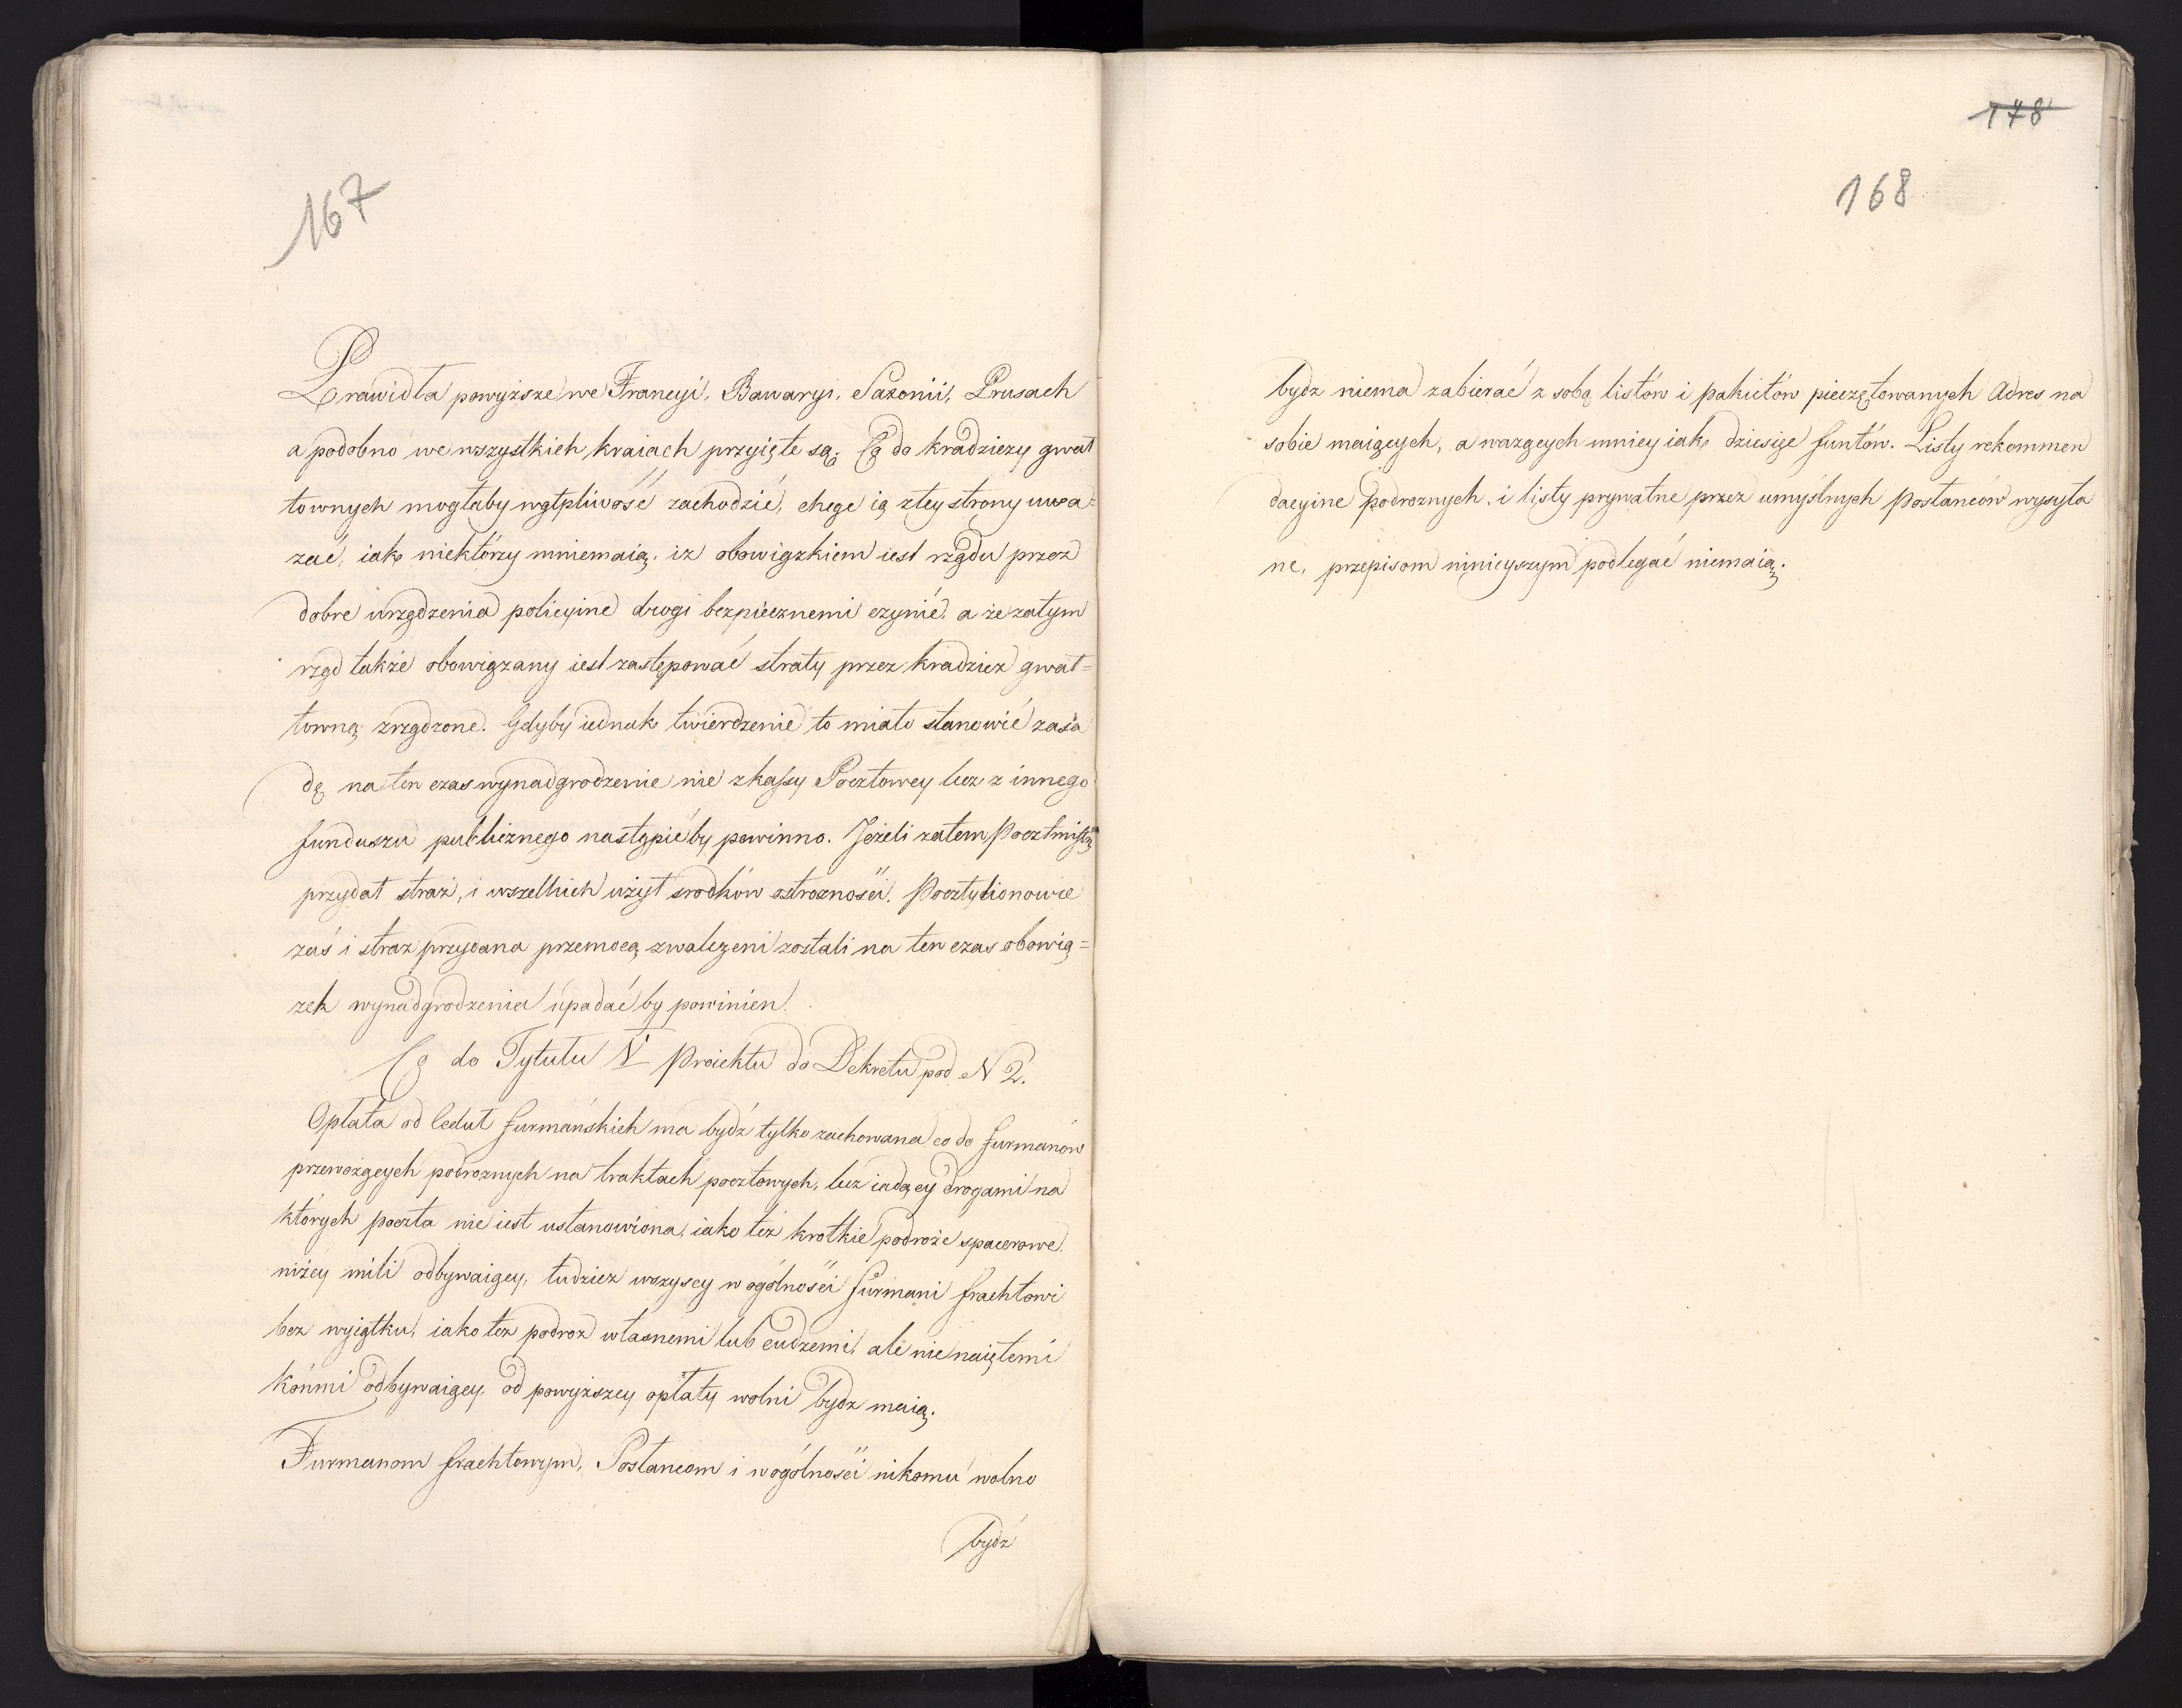 167
Prawidła powyższe we Francyi, Bawaryi, Saxonii, Prusach
a podobno we wszystkich kraiach przyięte są; Co do kradzieży gwał
townych mogłaby wątpliwość zachodzić, chcąc ią ztey strony uwa=
zać, iak niektórzy mniemaią, iz obowiązkiem iest rządu przez
dobre urządzenia policyine drogi bezpiecznemi czynić, a że zatym
rząd także obowiązany iest zastępować straty przez kradziez gwał=
towną zrządzone. Gdyby iednak twierdzenie to miało stanowić zasa
dę na ten czas wynadgrodzenie nie zkassy Pocztowey lecz z innego
funduszu publicznego nastąpić by powinno. Jeżeli zatem Pocztmistrz
przydał straż, i wszelkich użył srodków ostrozności, Pocztylionowie
zaś i straz przydana przemocą zwalczeni zostali na ten czas obowią=
zek wynadgrodzenia upadać by powinien.
Co do Tytułu V Proiektu do Dekretu pod N 2.
Opłata od Cedut furmańskich ma bydź tylko zachowana co do furmanów
przewożących podroznych na traktach pocztowych, lecz iadący drogami na
których poczta nie iest ustanowiona, iako też krotkie podroże spacerowe
niżey mili odbywaiący, tudziez wszyscy w ogólności furmani frachtowi
bez wyiątku, iako tez podroz własnemi lub cudzemi, ale nie naiętemi
końmi odbywaiący od powyższey opłaty wolni bydz maią.
Furmanom frachtowym, Posłancom i w ogólności nikomu wolno
bydź
178
168
bydz niema zabierać z sobą listów i pakietów pieczętowanych Adres na
sobie maiących, a wazących mniey iak dziesięc funtów. Listy rekommen
dacyine podroznych, i listy prywatne przez umyślnych Posłanców wysyła
ne, przepisom ninieyszym podlegać niemaią.